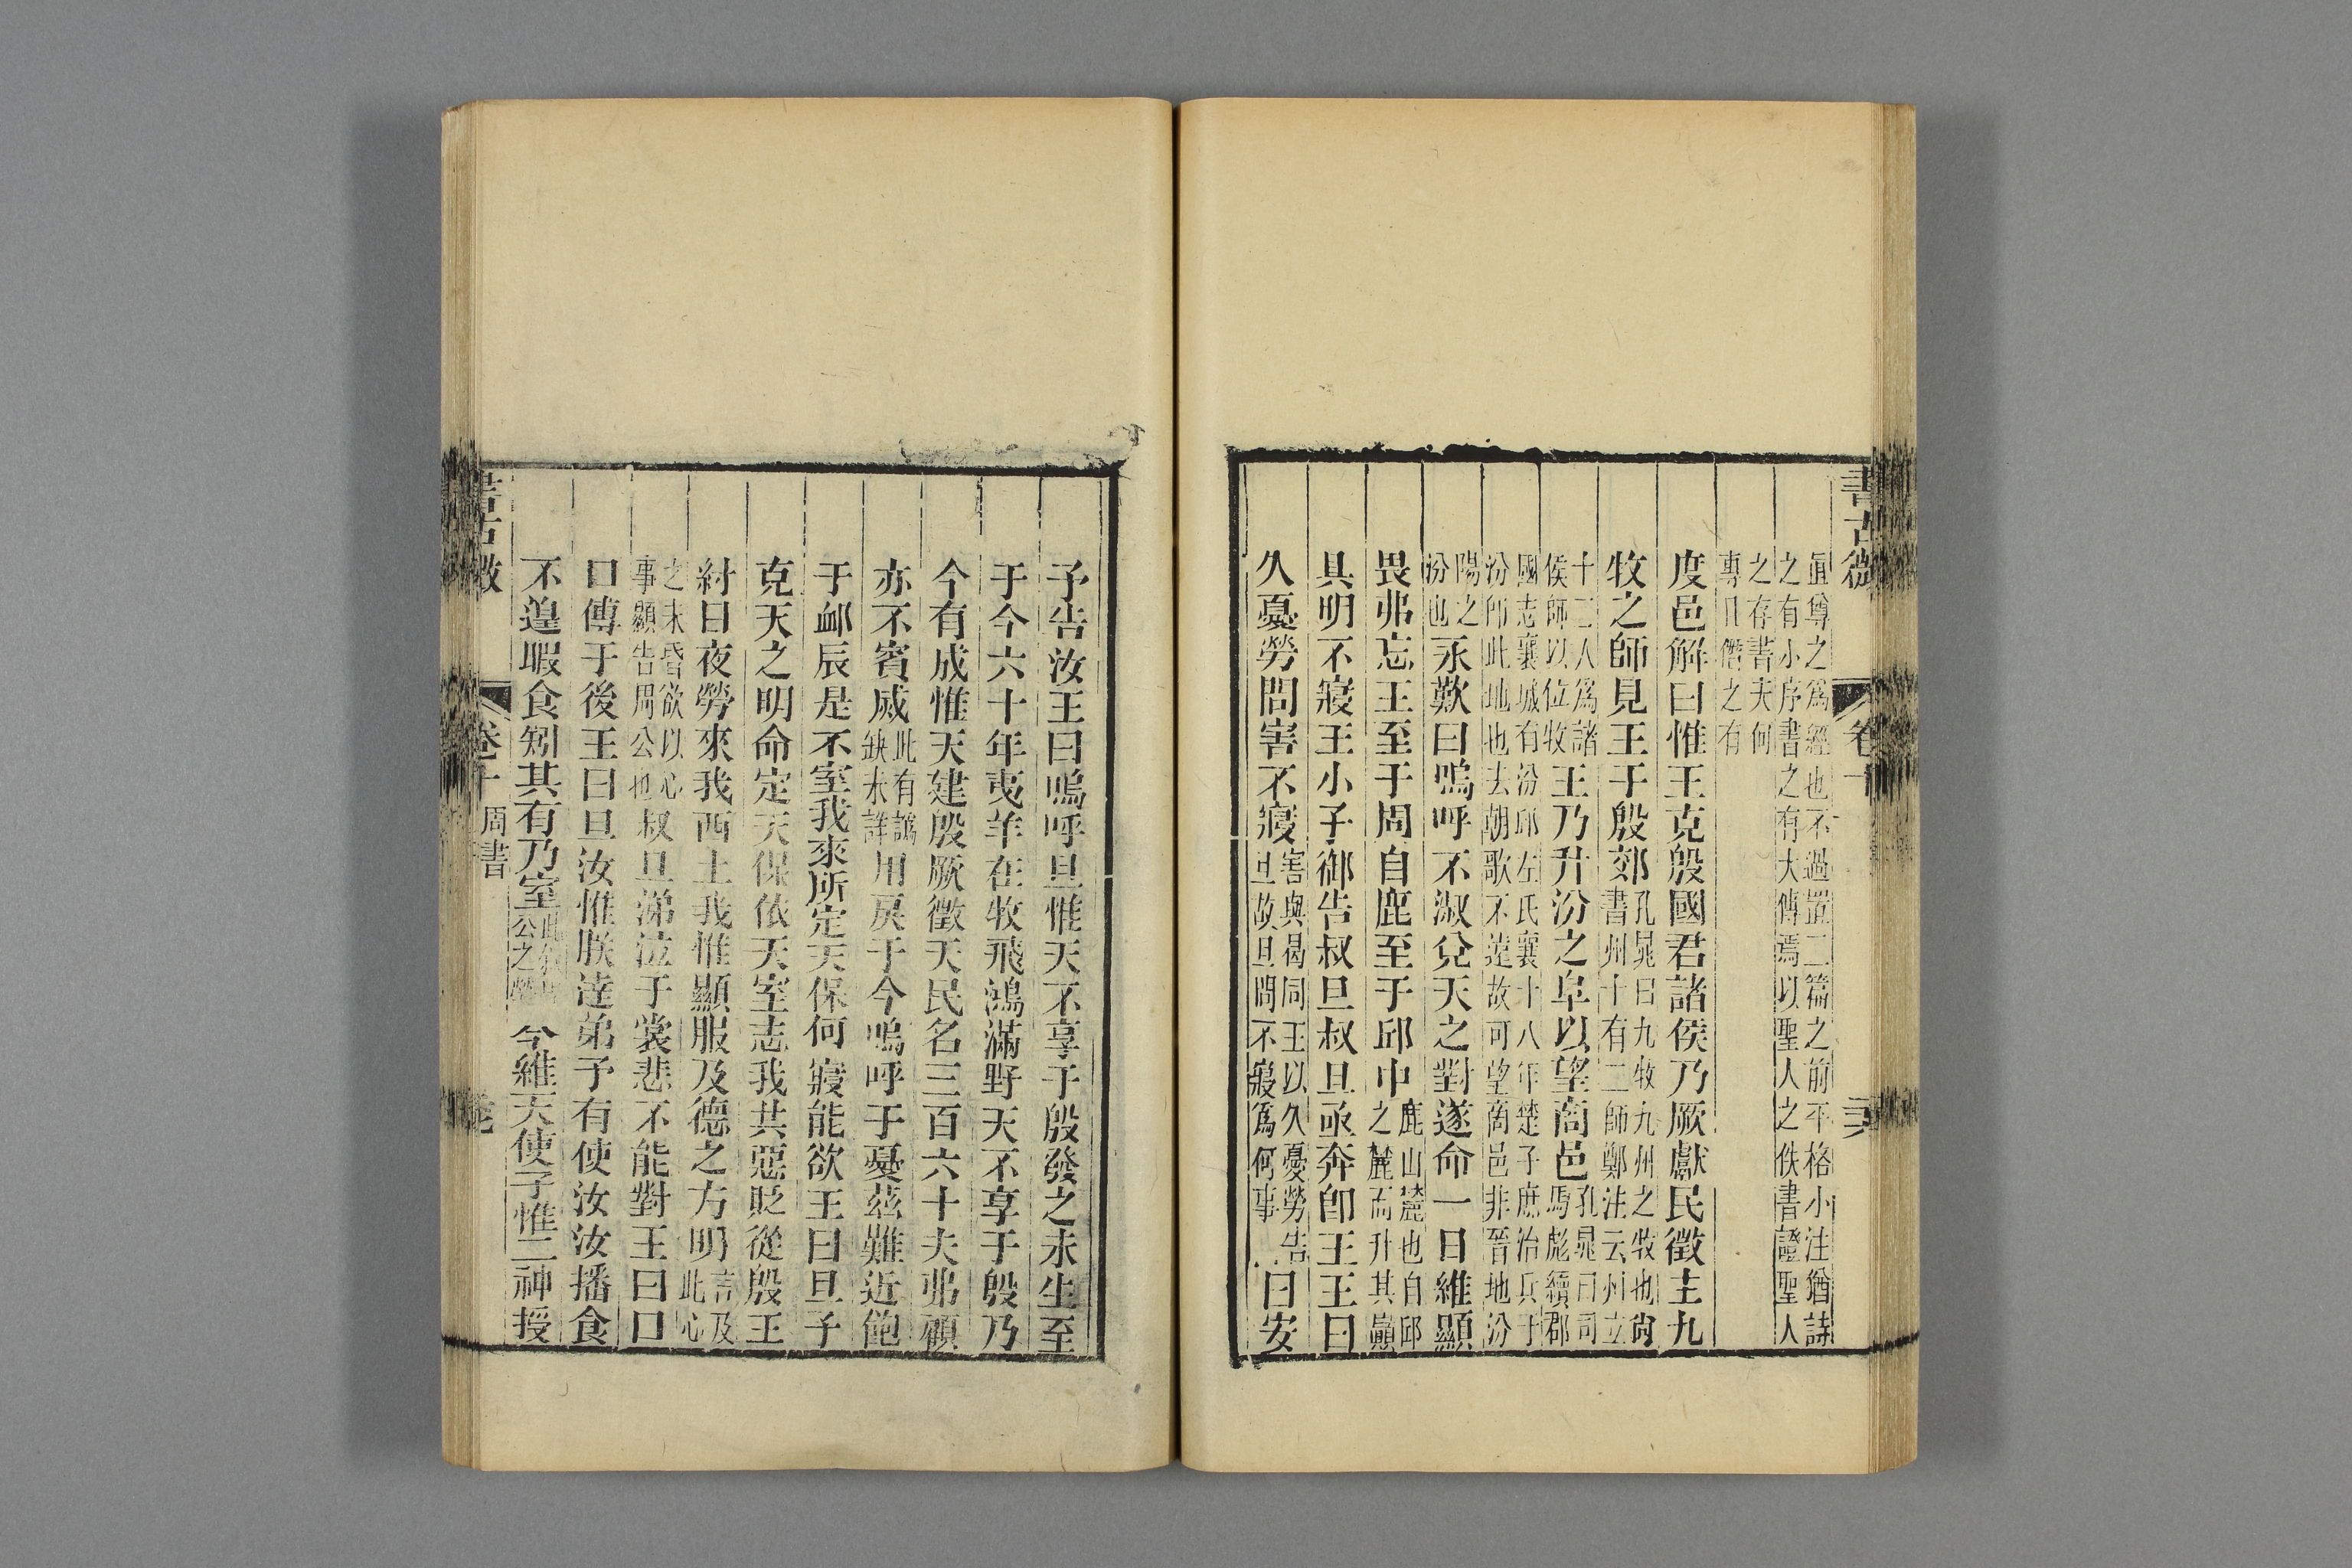 書古微 卷十 三六
眞尊之爲經也不過置二篇之前平格小注猶詩
之有小序書之有大傳焉以聖人之佚書證聖人
之存書夫何
專且僭之有
度邑解曰惟王克殷國君諸侯乃厥獻民徵主九
牧之師見王于殷郊孔晁曰九牧九州之牧也尙
書州十有二師鄭注云州立
十二人爲諸
侯師以佐牧王乃升汾之阜以望商邑孔晁曰司
馬彪續郡
國志襄城有汾邱左氏襄十八年楚子庶治兵于
汾卽此地也去朝歌不遠故可望商邑非晉地汾
陽之
汾也永歎曰嗚呼不淑兌天之對遂命一日維顯
畏弗忘王至于周自鹿至于邱中鹿山麓也自邱
之麓而升其巓
具明不寢王小子御告叔旦叔旦亟奔卽王王曰
久憂勞問害不寢害與曷同王以久憂勞告
旦故旦問不寢爲何事曰安
予告汝王曰嗚呼旦惟天不享于殷發之未生至
于今六十年夷羊在牧飛鴻滿野天不享于殷乃
今有成惟天建殷厥徵天民名三百六十夫弗顧
亦不賓威此有譌
缺未詳用戾于今嗚呼于憂茲難近飽
于卹辰是不室我來所定天保何寢能欲王曰旦予
克天之明命定天保依天室志我共惡貶從殷王
紂日夜勞來我西土我惟顯服及德之方明言及
此心
之未昏欲以心
事顯告周公也叔旦涕泣于裳悲不能對王曰口
口傳于後王曰旦汝惟朕達弟予有使汝汝播食
不遑暇食矧其有乃室
公之今維天使予惟二神授
書古微 卷十 周書